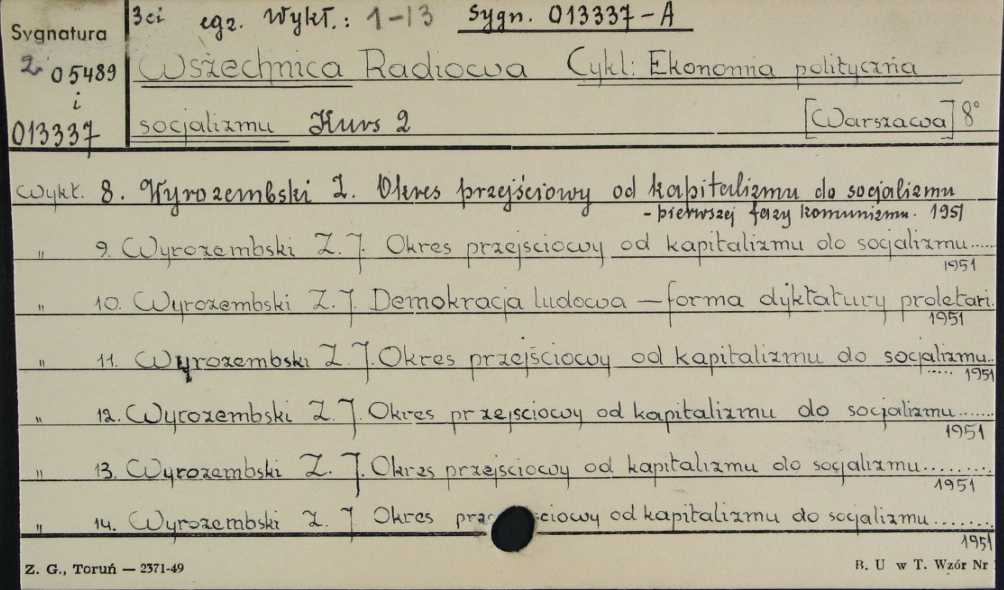 3ci egz. Wykł.: 1-13 Sygn. 013337-A
Sygnatura
2 05489 Wszechnica Radiowa Cykl: Ekonomia polityczna
i
013337 socjalizmu Kurs 2 [Warszawa] 8°
Wykł. 8. Wyrozembski Z. Okres przejściowy od kapitalizmu do socjalizmu
- pierwszej fazy komunizmu. 1951
" 9. Wyrozembski Z. J. Okres przejsciowy od kapitalizmu do socjalizmu.....
1951
" 10. Wyrozembski Z. J. Demokracja ludowa — forma dyktatury proletari.
1951
" 11. Wyrozembski Z. J. Okres przejściowy od kapitalizmu do socjalizmu..
..... 1951
" 12. Wyrozembski Z. J. Okres przejsciowy od kapitalizmu do socjalizmu......
1951
" 13. Wyrozembski Z. J. Okres przejsciowy od kapitalizmu do socjalizmu.........
1951
" 14. Wyrozembski Z. J Okres ciowy od kapitalizmu do socjalizmu........
1951
Z. G., Toruń — 2371-49 B. U w T. Wzór Nr